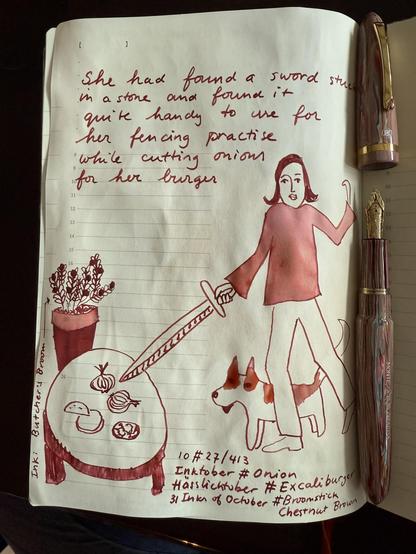 She had found a sword stu
in a stone and found it
quite handy to use for
her fencing practise
while cutting onions
for her burger
Ink: Butcher's Broom
10 # 27/413
Inktober # Onion
Hässlichtober # Excaliburger
31 Inks of October # Broomstick
Chestnut Brown